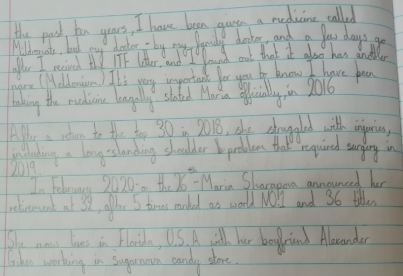 the past ten years, I have been given a medicine called
Mildronate, but my doctor - by my family doctor, and a few days ago
after I recived the ITF letter, and I found out that it also has another
name (Meldonium) It's very important for you to know I have been
taking the medicine leagally stated Maria officially, in 2016
After a return to the top 30 in 2018, she struggled with injuries,
including a long-standing shoulder problem that required surgery in
2019.
In February 2020 - the 26 - Maria Sharapova announced her
retirement at 32, after 5 times ranked as world NO1 and 36 titles
She now lives in Florida, U.S.A with her boyfriend Alexander
Gikes working in Sugarnova candy store.